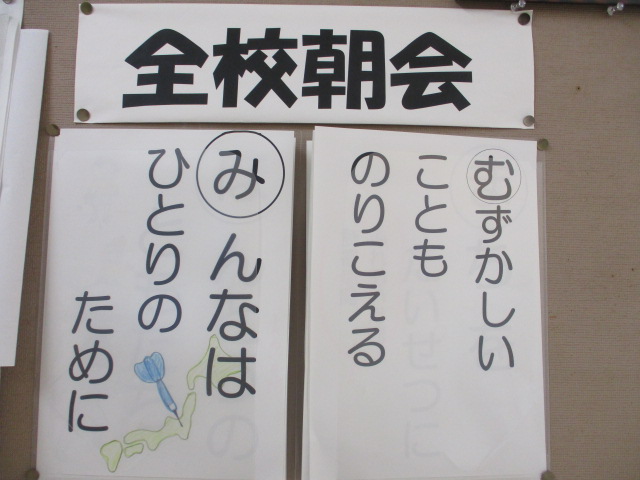 全校朝会
むずかしい
ことも
のりこえる
みんなは
ひとりの
ために